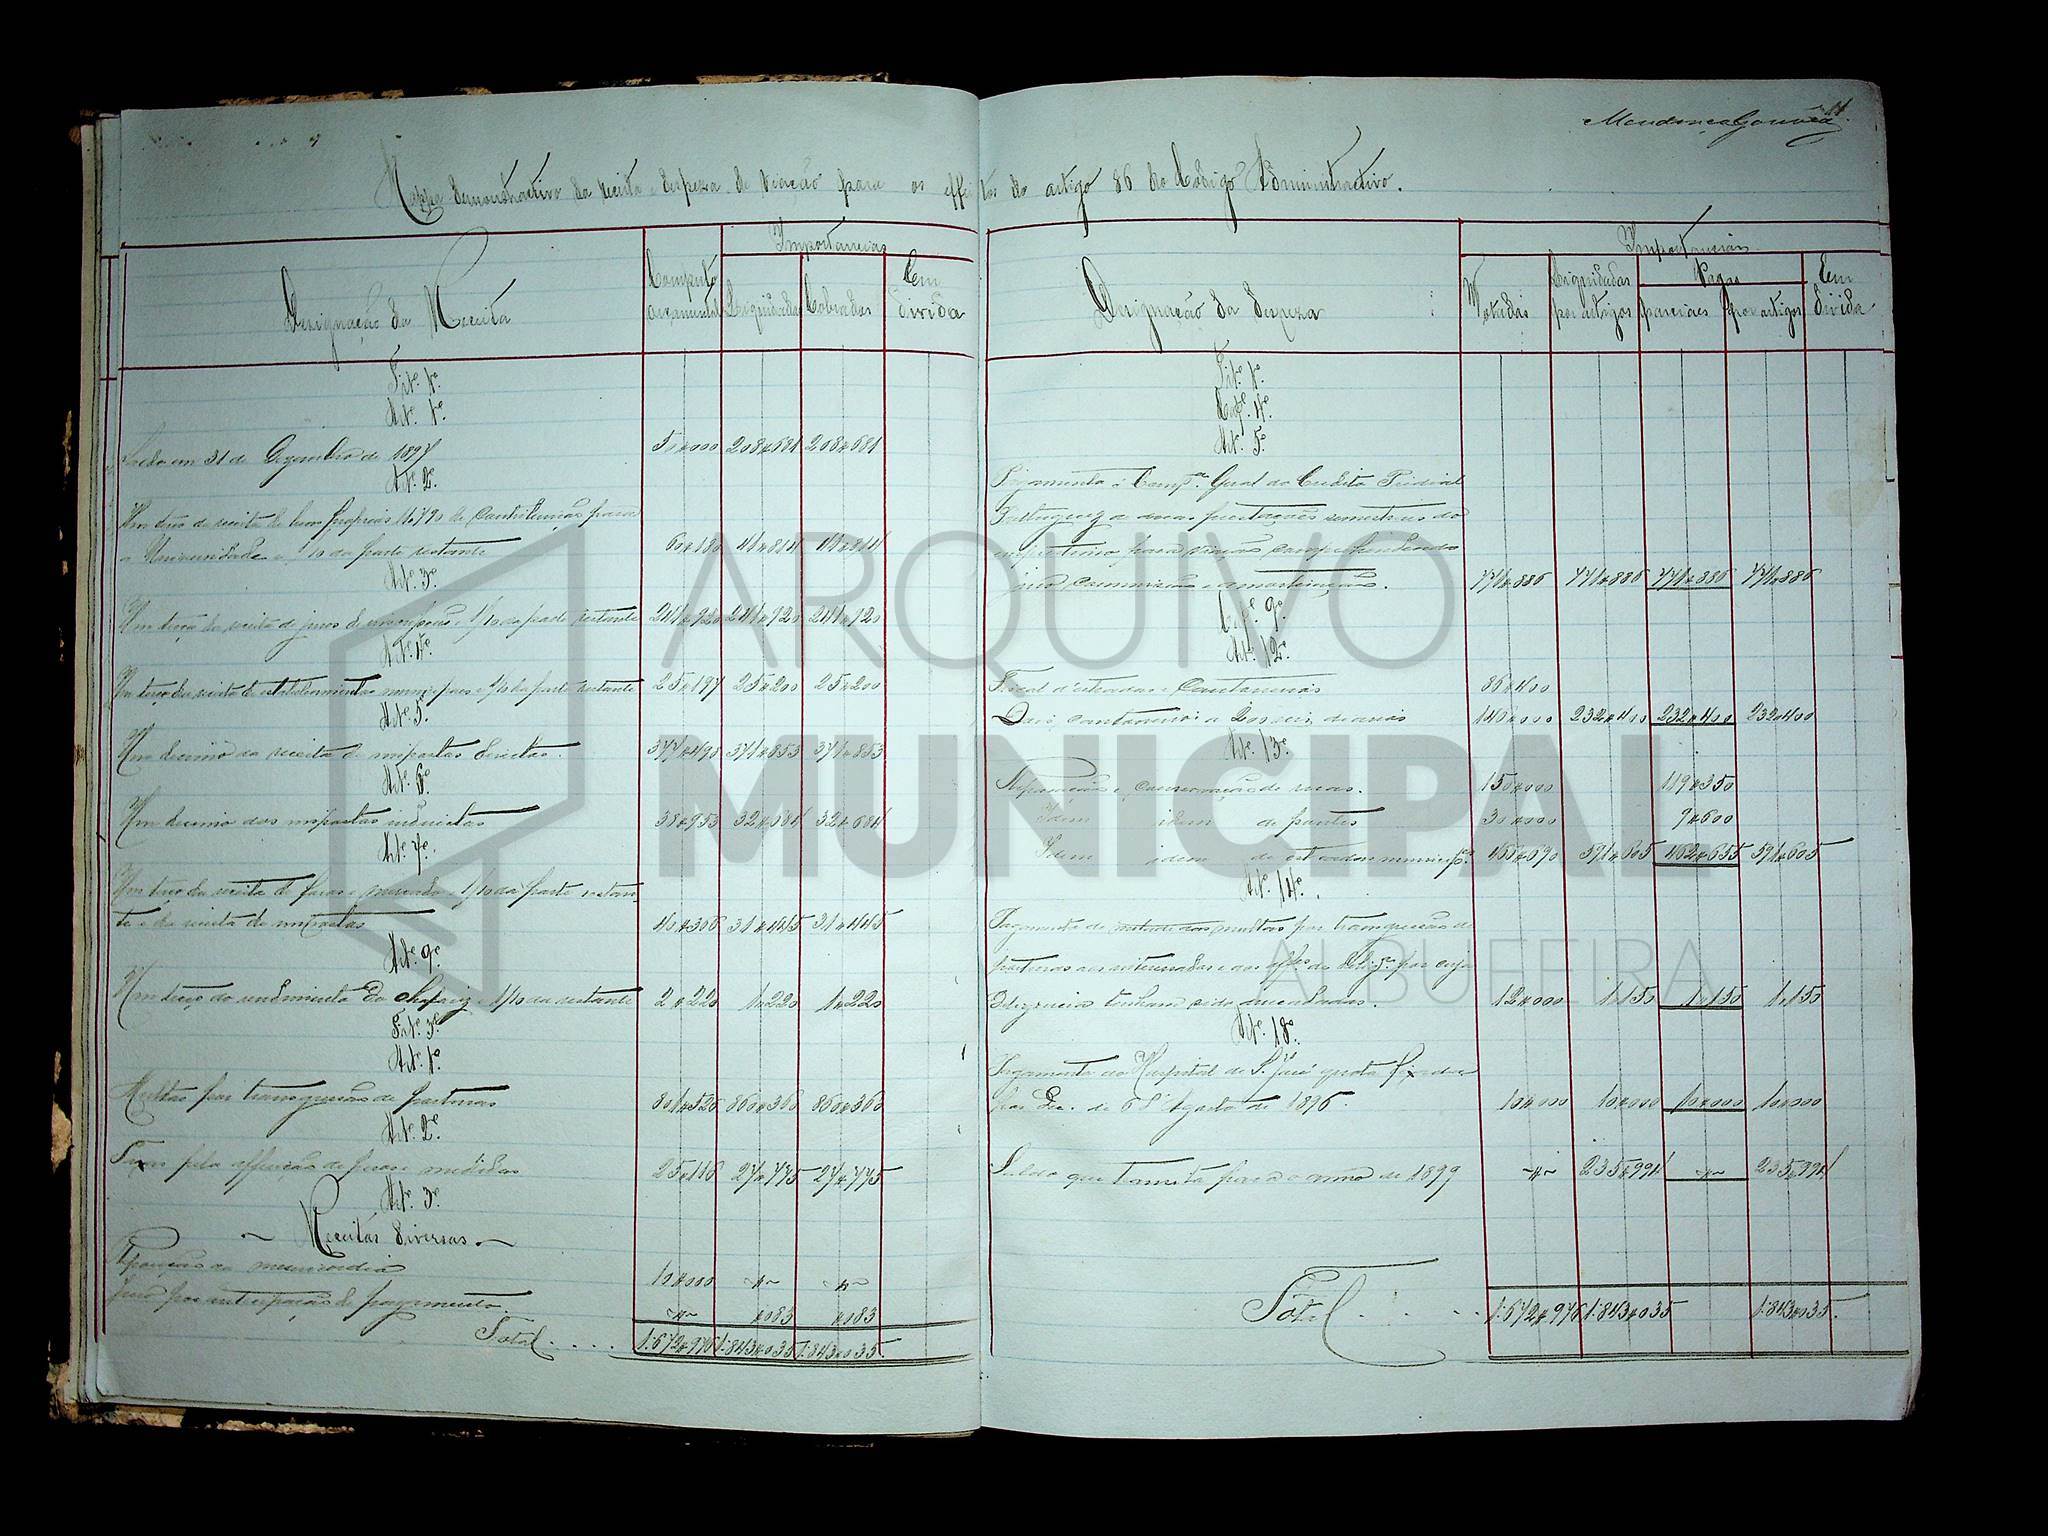 Mendonça Gouvêa 11.
Mappa demonstractivo da receita e despeza de viação para os effeitos do artigo 86 do Codigo Administractivo.
Designação da Receita
Computo orçamental
Importancias
Liquidadas
Cobradas
Em divida
Tit.º 1.º
Art.º 1.º
Saldo em 31 de Dezembro de 1897 50$000 208$681 208$681
Art.º 2.º
Um terço da receita de bens proprios
e 1/10 da parte restante 41$814 41$814
Art.º 3.º
Um terço da receita de juros de inscripções e 1/10 da parte restante 241$920 241$920 241$920
Art.º 4.º
Um terço da receita de estabelecimentos municipaes e 1/10 da parte restante 25$197 25$200 25$200
Art.º 5.º
Um decimo da receita de impostos directos. 371$853 371$853
Art.º 6.º
Um decimo dos impostos indirectos 38$953 32$681 32$681
Art.º 7.º
Um terço da receita de feiras e mercado e 1/10 da parte restan-
te e da receita de impostos 40$306 31$445 31$445
Art.º 9.º
Um terço do rendimento do Chafariz e 1/10 da restante 2$220 1$220 1$220
Tit.º 3.º
Art.º 1.º
Multas por transgressões de posturas 801$526 860$366 860$366
Art.º 2.º
Taxas pela afferição de pesos e medidas 25$116 27$775 27$775
Art.º 3.º
Receitas diversas
da misericordia 10$000 -"- -"-
Juro por antecipação de pagamento. -"- $083 $083
Total.... 1:672$976 1:843$035 1:843$035
Designação da despeza
Importancias
Votadas
Liquidadas por artigos
Pagas
parciaes
por artigos
Em divida
Tit.º 1.º
Cap.º 4.º
Art.º 5.º
Pagamento á Comp.ª Geral do Credito Predial
Portuguez de duas prestações semestraes do
emprestimo para viação comprehendendo
juro commissão e amortisação. 771$886 771$886 771$886 771$886
Cap.º 9.º
Art.º 12.º
Fiscal d'estradas e Cantoneiros 86$400
Dois cantoneiros a 200 reis diarios 146$000 232$400 232$400 232$400
Art.º 13.º
Reparação e conservação de ruas. 150$000 119$350
Idem idem de pontes 30$000 9$600
Idem idem de estradas municip.es 466$690 591$605 462$655 591$605
Art.º 14.º
Pagamento de metade das multas por transgressões de
posturas aos interessados e aos off.es de dilig.as por cuja
diligencias tenham sido arrecadadas. 12$000 1$150 1$150 1$150
Art.º 18.º
Pagamento ao Hospital de S. José quota fixada
por Dec. de 6 d'Agosto de 1896. 10$000 10$000 10$000 10$000
Saldo que transita para o anno de 1899 -"- 235$994 -"- 235$994
Total.... 1:672$976 1:843$035 1:843$035.
ARQUIVO
MUNICIPAL
ALBUFEIRA